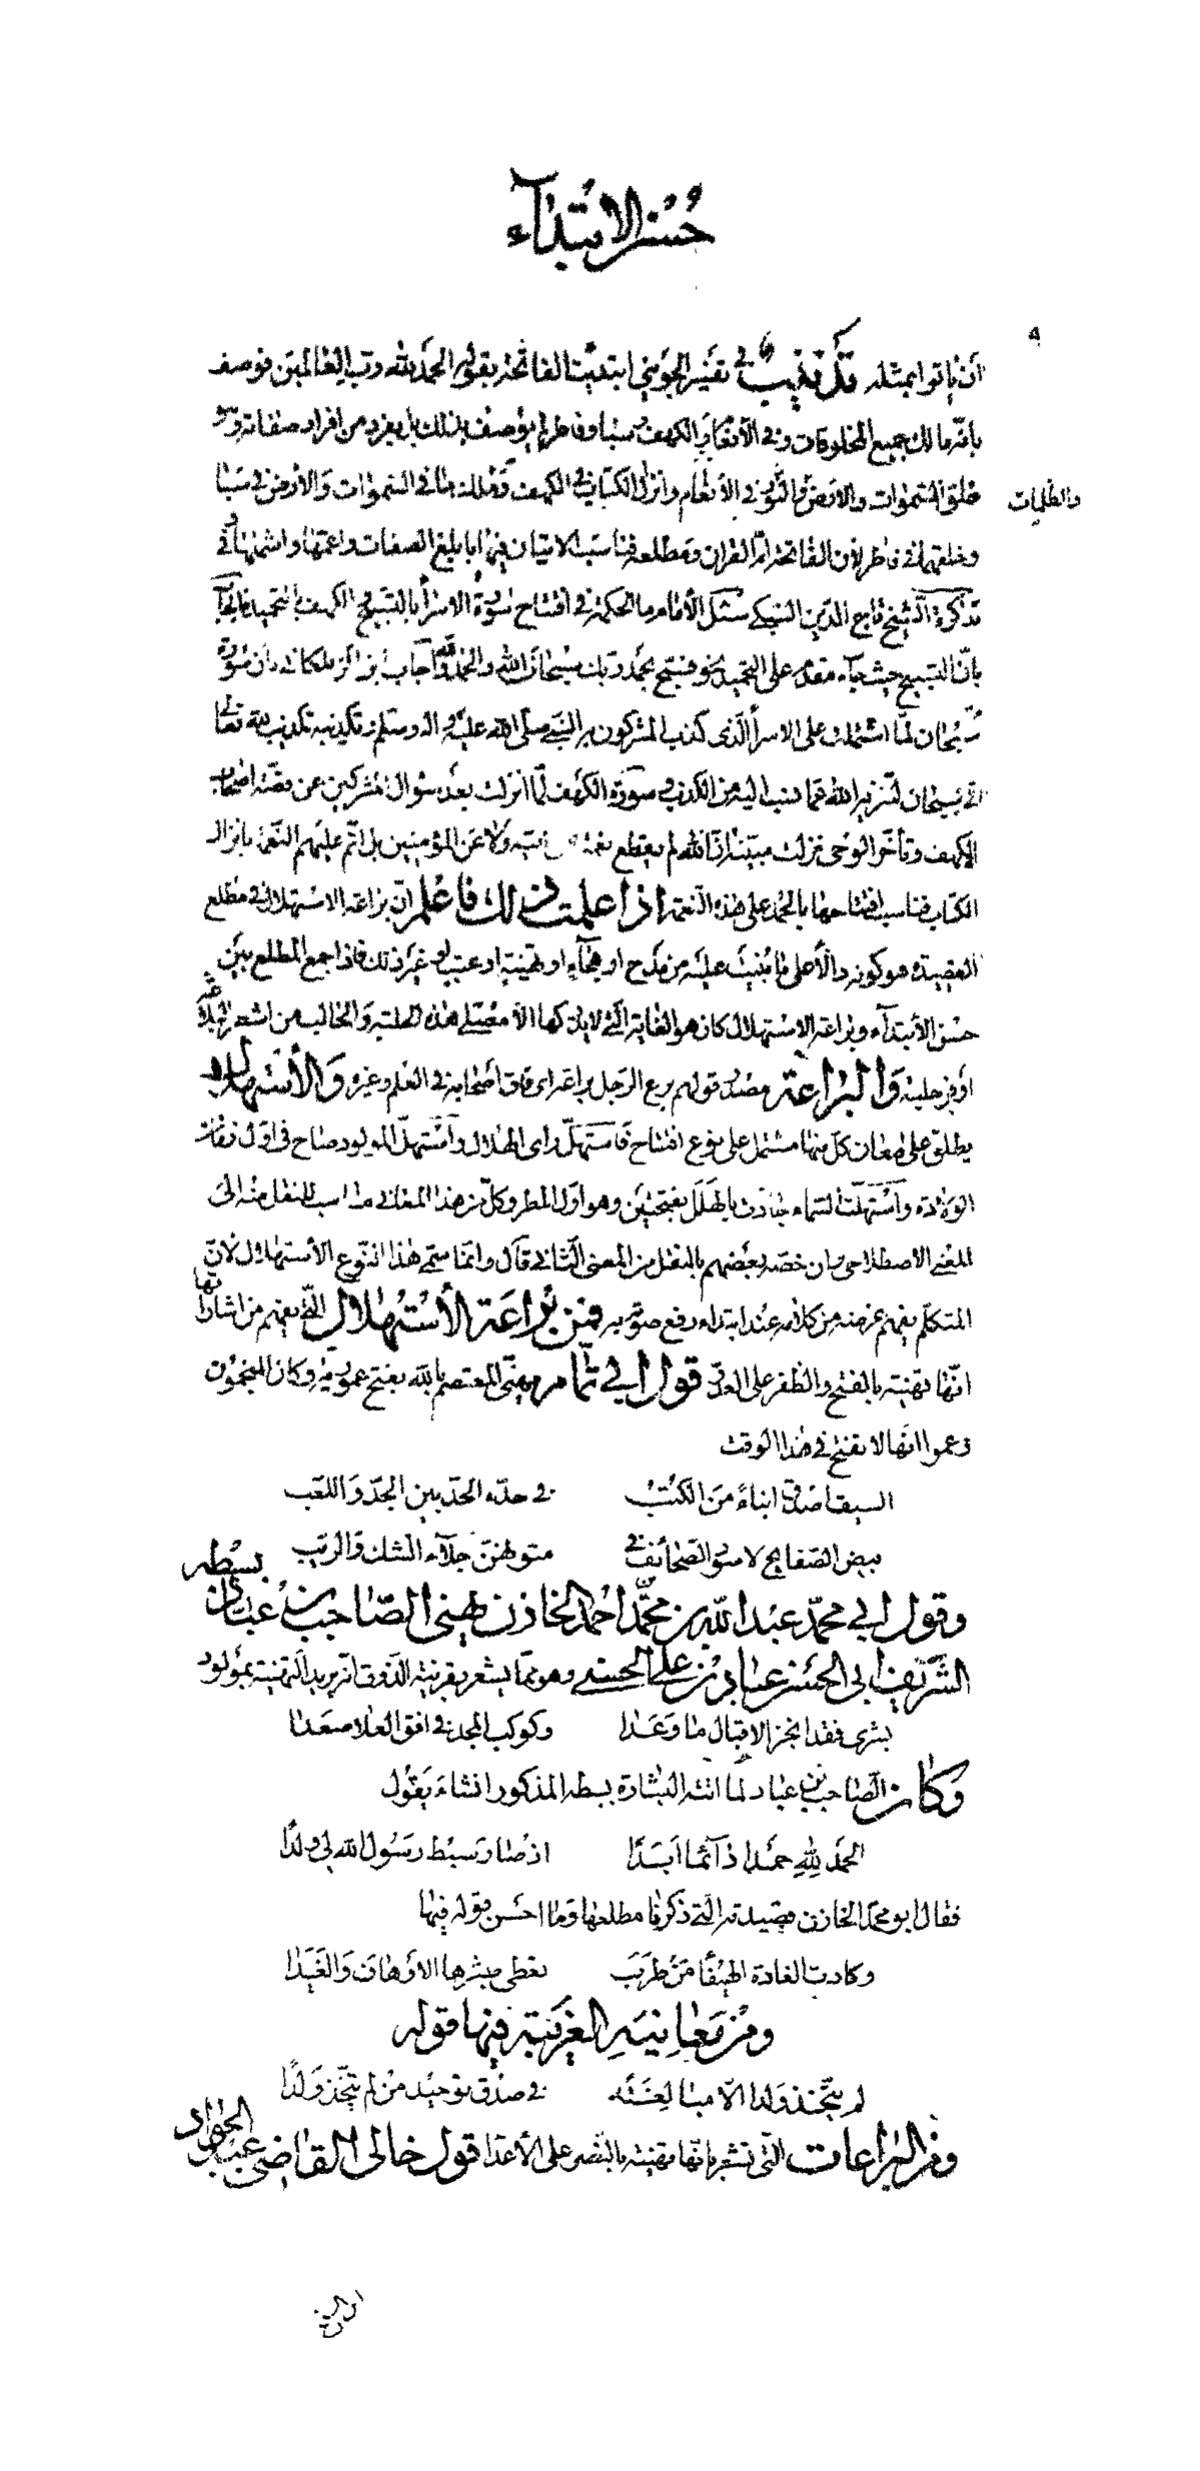 حُسْنُ الابْتِدَآء
٩
أن يأتوا بمثله تذنيب في تفسير الجويني ابتدئت الفاتحة بقوله الحمد لله رب العالمين فوصف
بأنه مالك جميع المخلوقات وفي الأنعام والكهف وسبا وفاطر لم يوصف بذلك بل بفرد من افراد صفاته وهو
خلق السموات والارض والنور في الأنعام وانزال الكتاب في الكهف وملك ما في السموات والأرض في سبا
والظلمات
وخلقهما في فاطر لأن الفاتحة ام القران ومطلعه فناسب الاتيان فيها بابلغ الصفات واعمها واشملها في
تذكرة الشيخ تاج الدين السبكي سئل الأمام ما الحكمة في افتتاح سورة الاسرأ بالتسبيح والكهف بالتحميد فاجاب
بان التسبيح حيث جآء مقدم على التحميد نحو فسبح بحمد ربك سبحان الله والحمد لله وأجاب ابن الزملكاني بان سورة
سُبحان لما اشتملت على الاسرأ الذى كذب المشركون به النبي صلى الله عليه واله وسلم وتكذيبه تكذيب لله تعالى
اتى بسبحان لتنزيه الله عما نسب اليه من الكذب وسورة الكهف لما انزلت بعد سؤال المشركين عن قصة اصحاب
الكهف وتأخر الوحى نزلت مبينة ان الله لم يقطع نعمته عن نبيه ولا عن المؤمنين بل اتم عليهم النعمة بانزال
الكتاب فناسب افتتاحها بالحمد على هذه النعمة اذا علمت ذلك فاعلم ان براعة الاستهلال في مطلع
القصيدة هو كونه دالاً على ما بُنيت عليه من مدح او هجآء او تهنية او عتب او غير ذلك فاذا جمع المطلع بين
حسن الأبتدآء وبراعة الاستهلال كان هو الغاية التي لا يدركها الا مصلى هذه الحلبة والحالب من اشعر البلاغة
اوفر حلبة وَالبراعة مصدر قولهم برع الرجل براعة اى فاق أصحابه في العلم وغيره وَالأستهلال
يطلق على معان كل منها مشتمل على نوع افتتاح فاستهل راى الهلال واستهل المولود صاح فى اول زمان
الولادة واستهلت السماء جادت بالهَلَل بفتحتين وهو اول المطر وكل من هذه المعاني مناسب للنقل منه الى
المعنى الاصطلاحي وان خصه بعضهم بالنقل من المعنى الثاني قال وانما سمى هذا النوع الأستهلال لان
المتكلم يفهم غرضه من كلامه عند ابتداء رفع صوته به فمن براعة الأستهلال التي يفهم من اشارتها
انها تهنية بالفتح والظفر على العدو قول ابي تمام يهنى المعتصم بالله بفتح عمورية وكان المنجمون
زعموا انها لا تفتح في هذا الوقت
السيف اصدق انباءً من الكتب في حده الحد بين الجد واللعب
بيض الصفايح لا سود الصحائف في متونهن جلاء الشك والريب
وقول ابي محمد عبد الله بن محمد احمد الخازن يهنى الصاحب بن عباد بسبطه
الشريف ابى الحسن عباد بن على الحسني وهو مما يشعر بقرينة الذوق انه يريد التهنية بمولود
بشرى فقد انجز الاقبال ما وعدا وكوكب المجد في افق العلا صعدا
وكان الصاحب بن عباد لما اتته البشارة بسبطه المذكور انشاء يقول
الحمد لله حمدا دآئما ابدًا اذ صار سبط رسول الله لي ولدًا
فقال ابو محمد الخازن قصيدته التي ذكرنا مطلعها وما احسن قوله فيها
وكادت الغادة الهيفاً من طرب تعطى مبشرها الاوهاف والغيدا
ومن معانيه الغريبة فيها قوله
لم يتخذ ولدا الا مبالغة في صدق توحيد من لم يتخذ ولدًا
ومن البراعات التى تشعر بانها تهنية بالنصر على الأعدا قول خالى القاضي عبد الجواد